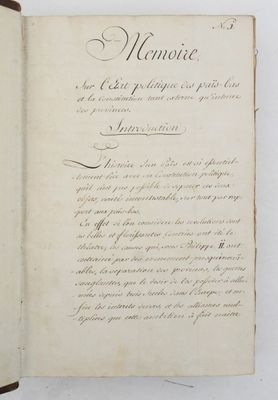 No. 1
Memoire
Sur l'Etat politique des païs-bas
et la Constitution tant externe qu'interne
des provinces.
Introduction
L'histoire d'un Païs est si essentiel-
lement liée avec sa Constitution politique,
qu'il n'est pas possible de séparer ces deux
objets, vérité incontestable, sur tout par rap-
port aux païs-bas.
En effet si l'on considère les revolutions dont
ces belles et florissantes Contrées ont été le
théatre, les causes qui sous Philippe II ont
entrainé par des evenements presqu'incroy-
ables, la separation des provinces, les guerres
sanglantes, que le desir de les posseder a allu-
mées depuis trois siecles dans l'Europe, et en-
fin les interets divers, et les alliances mul-
tipliées que cette ambition a fait naitre